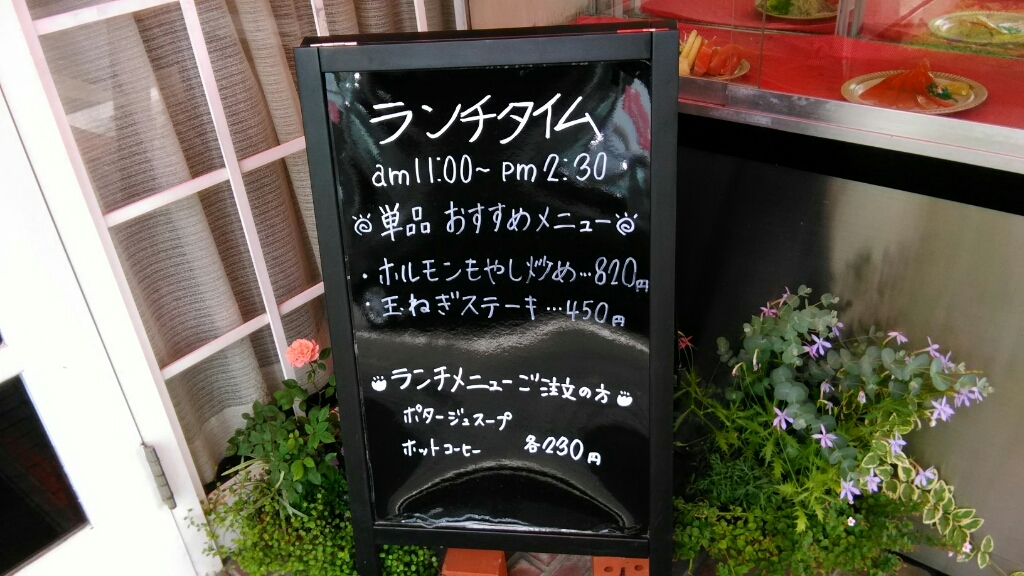 ランチタイム
am11:00~ pm2:30
単品 おすすめメニュー
・ホルモンもやし炒め…820円
・玉ねぎステーキ…450円
ランチメニューご注文の方
ポタージュスープ
ホットコーヒー 各230円